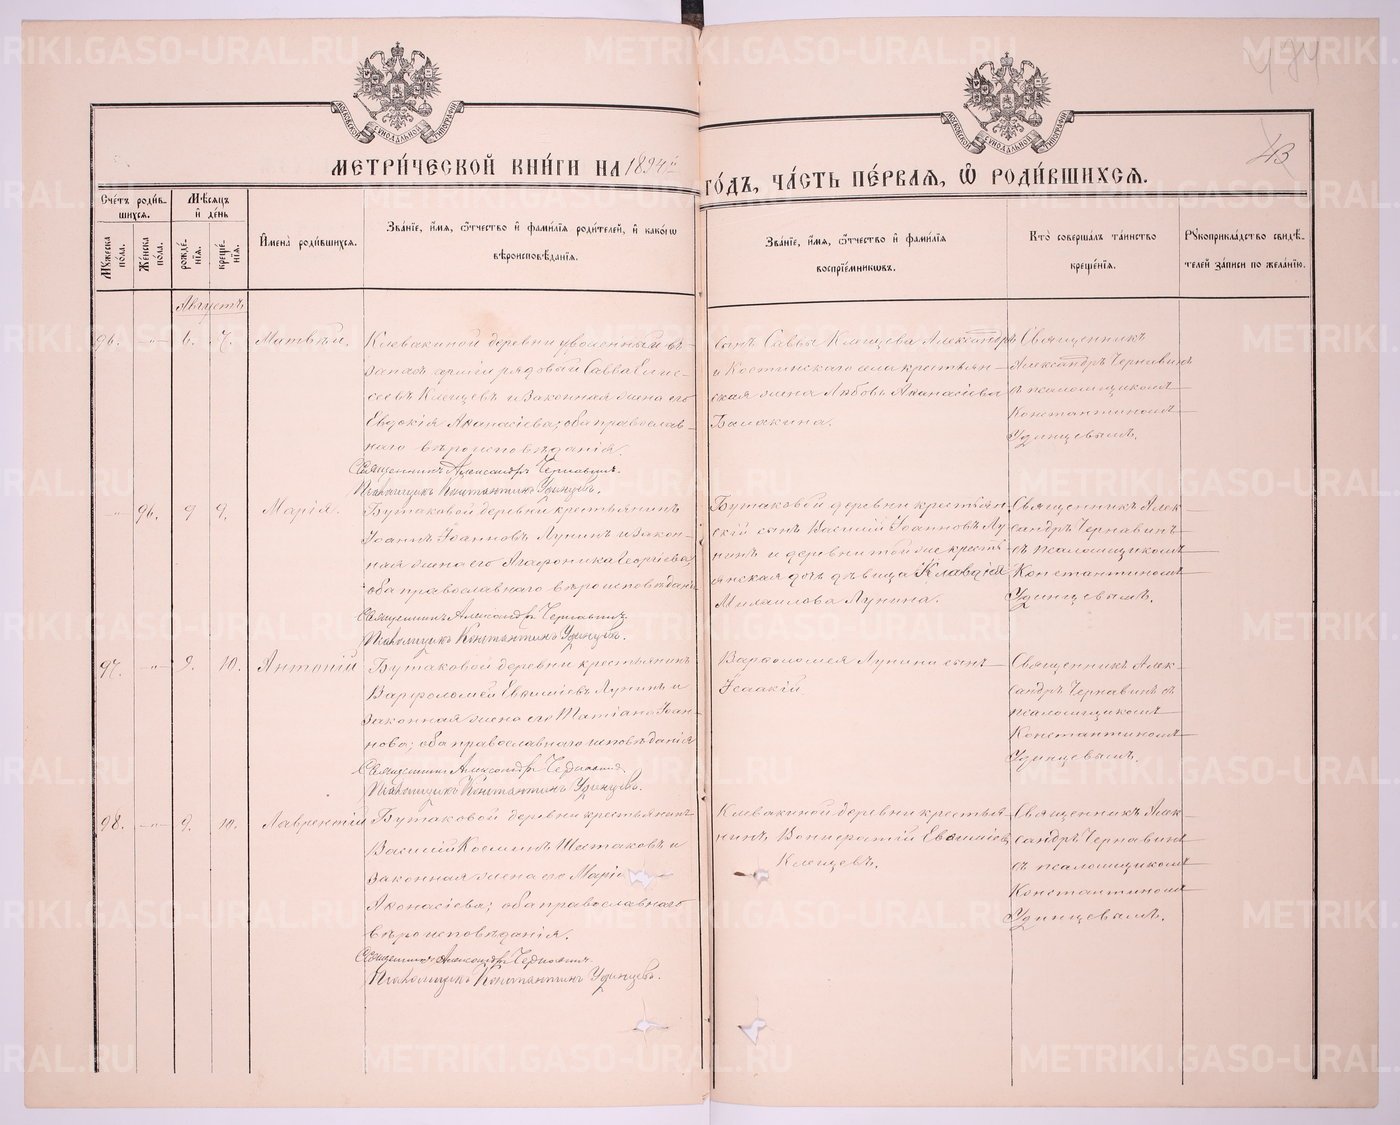 МЕТРИ́ЧЕСКОЙ КНИ́ГИ НА 1894й ГО́ДЪ, ЧА́СТЬ ПЕ́РВАЯ, Ѽ РОДИ́ВШИХСЯ.
43
МОСКОВСКОЙ СѴНОДАЛЬНОЙ ТИПОГРАФІИ
МОСКОВСКОЙ СѴНОДАЛЬНОЙ ТИПОГРАФІИ
Сче́тъ роди́в-
шихся.
Мꙋ́жеска по́ла.
Же́нска по́ла.
Мѣ́сяцъ
и҆ де́нь
рожде́-
нія.
креще́-
нія.
И҆мена̀ роди́вшихся.
Зва́ніе, и҆́мя, ѻ҆́тчество и҆ фами́лія роди́телей, и҆ како́гѡ
вѣроисповѣ́данія.
Зва́ніе, и҆́мя, ѻ҆́тчество и҆ фами́лія
воспріе́мникѡвъ.
Кто̀ соверша́лъ та́инство
креще́нія.
Рꙋкоприкла́дство свидѣ́-
телей за́писи по жела́нію.
Августъ
96. —"— 6. 7. Матвѣй.
Клевакиной деревни уволенный въ
запасъ арміи рядовый Савва Елис-
сеевъ Клещевъ и законная жена его
Евдокія Аѳанасіева; оба православ-
наго вѣроисповѣданія.
Священникъ Александръ Чернавинъ.
Псаломщикъ Константинъ Удинцевъ.
сынъ Саввы Клещева Александръ
и Костинскаго села крестьян-
ская жена Любовь Аѳанасіева
Балакина.
Священникъ
Александръ Чернавинъ
съ псаломщикомъ
Константиномъ
Удинцевымъ.
—"— 96. 9 9. Марія.
Бутаковой деревни крестьянинъ
Іоаннъ Іоанновъ Лунинъ и закон-
ная жена его Агафоника Георгіева;
оба православнаго вѣроисповѣданія
Священникъ Александръ Чернавинъ
Псаломщикъ Константинъ Удинцевъ.
Бутаковой деревни крестьян-
скій сынъ Василій Іоанновъ Лу-
нинъ и деревни той же кресть-
янская дочь дѣвица Клавдія
Михаилова Лунина.
Священникъ Алек-
сандръ Чернавинъ
съ псаломщикомъ
Константиномъ
Удинцевымъ.
97. —"— 9. 10. Антоній
Бутаковой деревни крестьянинъ
Варѳоломей Евѳиміевъ Лунинъ и
законная жена его Татіана Іоан-
нова; оба православнаго исповѣданія
Священникъ Александръ Чернавинъ
Псаломщикъ Константинъ Удинцевъ.
Варѳоломея Лунина сынъ
Исаакій
Священникъ Алек-
сандръ Чернавинъ съ
псаломщикомъ
Константиномъ
Удинцевымъ.
98. —"— 9. 10. Лаврентій
Бутаковой деревни крестьянинъ
Василій Косминъ Шатаковъ и
законная жена его Марія
Аѳонасіева; оба православнаго
вѣроисповѣданія.
Священникъ Александръ Чернавинъ
Псаломщикъ Константинъ Удинцевъ.
Клевакиной деревни крестья-
нинъ Вонифатій Евѳиміевъ
Клещевъ.
Священникъ Алек-
сандръ Чернавинъ
съ псаломщикомъ
Константиномъ
Удинцевымъ.
METRIKI.GASO-URAL.RU